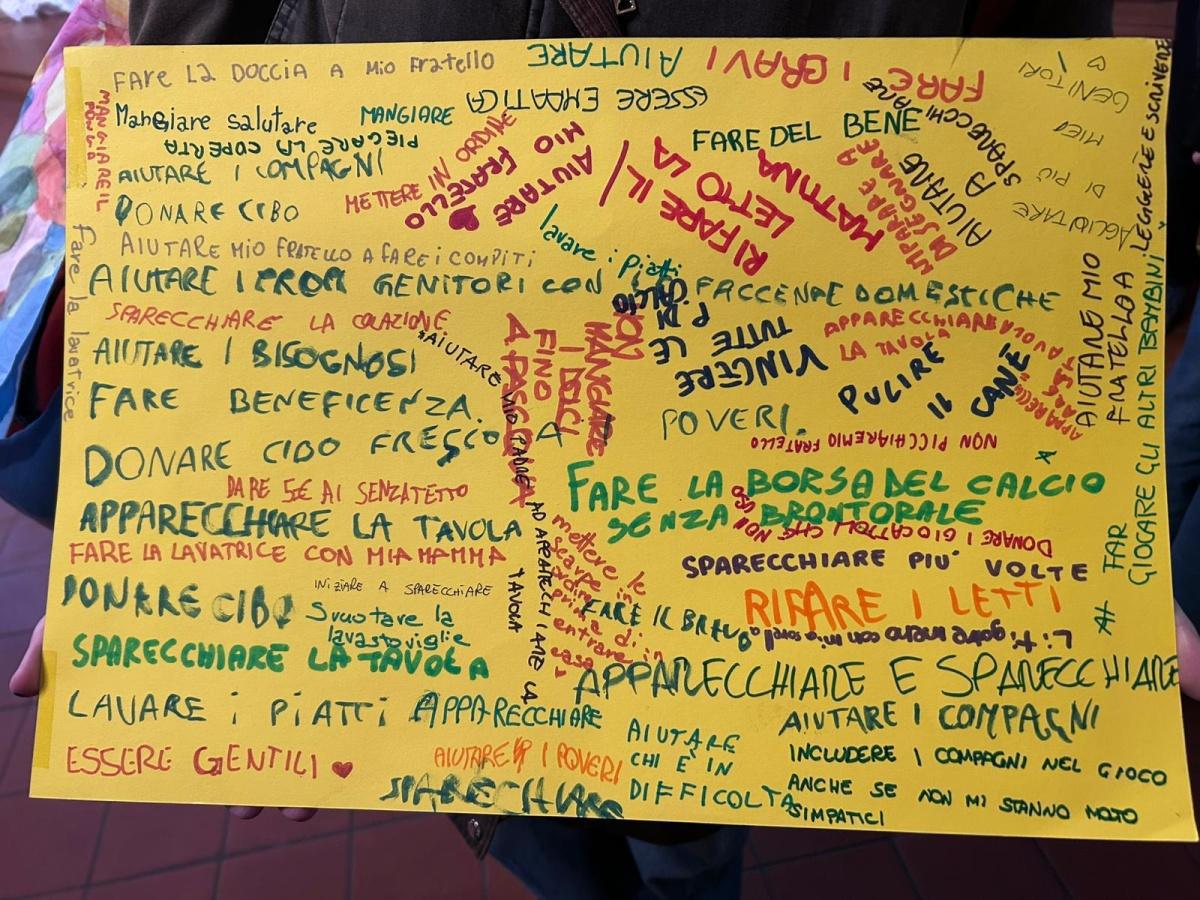 FARE LA DOCCIA A MIO FRATELLO
AIUTARE
FARE I BRAVI
GENITORI
MIEI
DI PIÙ
MANGIARE IL
Mangiare salutare
MANGIARE
ESSERE EMPATICA
PIEGARE LA COPERTA
AIUTARE I COMPAGNI
METTERE IN ORDINE
AIUTARE
MIO FRATELLO
FARE DEL BENE
AIUTARE
A
SPARECCHIARE
DONARE CIBO
RIFARE IL
LETTO LA
MATTINA
IMPARARE A
DISEGNARE
AIUTARE MIO FRATELLO A FARE I COMPITI
lavare i piatti
Fare la lavatrice
AIUTARE I PROPI GENITORI CON
FACCENDE DOMESTICHE
SPARECCHIARE LA COLAZIONE
VINCERE
TUTTE
LE
P. DI
CALCIO
APPARECCHIARE
LA TAVOLA
AIUTARE I BISOGNOSI
*AIUTARE MIO PADRE AD APPARECHIARE LA
TAVOLA
NON
MANGIARE
I DOLCI
FINO
A PASQUA
PULIRE
IL
CANE
AIUTARE MIO
FRATELLO A
LEGGERE E SCRIVERE
FARE BENEFICENZA.
POVERI.
NON PICCHIARE MIO FRATELLO
DONARE CIBO FRESCO A
FARE LA BORSA DEL CALCIO
SENZA BRONTORALE
DARE 5€ AI SENZATETTO
APPARECCHIARE LA TAVOLA
DONARE I GIOCATTOLI CHE NON
USO
FAR
GIOCARE GLI ALTRI BAMBINI
FARE LA LAVATRICE CON MIA MAMMA
mettere le
scarpe in
ordine
prima di
entrare in
casa
SPARECCHIARE PIU' VOLTE
INIZIARE A SPARECCHIARE
DONARE CIBO
Svuotare la
lavastoviglie
FARE IL BRAVO
RIFARE I LETTI
Litigare meno con mia sorella
SPARECCHIARE LA TAVOLA
APPARECCHIARE E SPARECCHIARE
LAVARE i PIATTI
APPARECCHIARE
AIUTARE
CHI È IN
DIFFICOLTA
AIUTARE I COMPAGNI
ESSERE GENTILI
AIUTARE I POVERI
INCLUDERE I COMPAGNI NEL GIOCO
ANCHE SE NON MI STANNO MOLTO
SIMPATICI